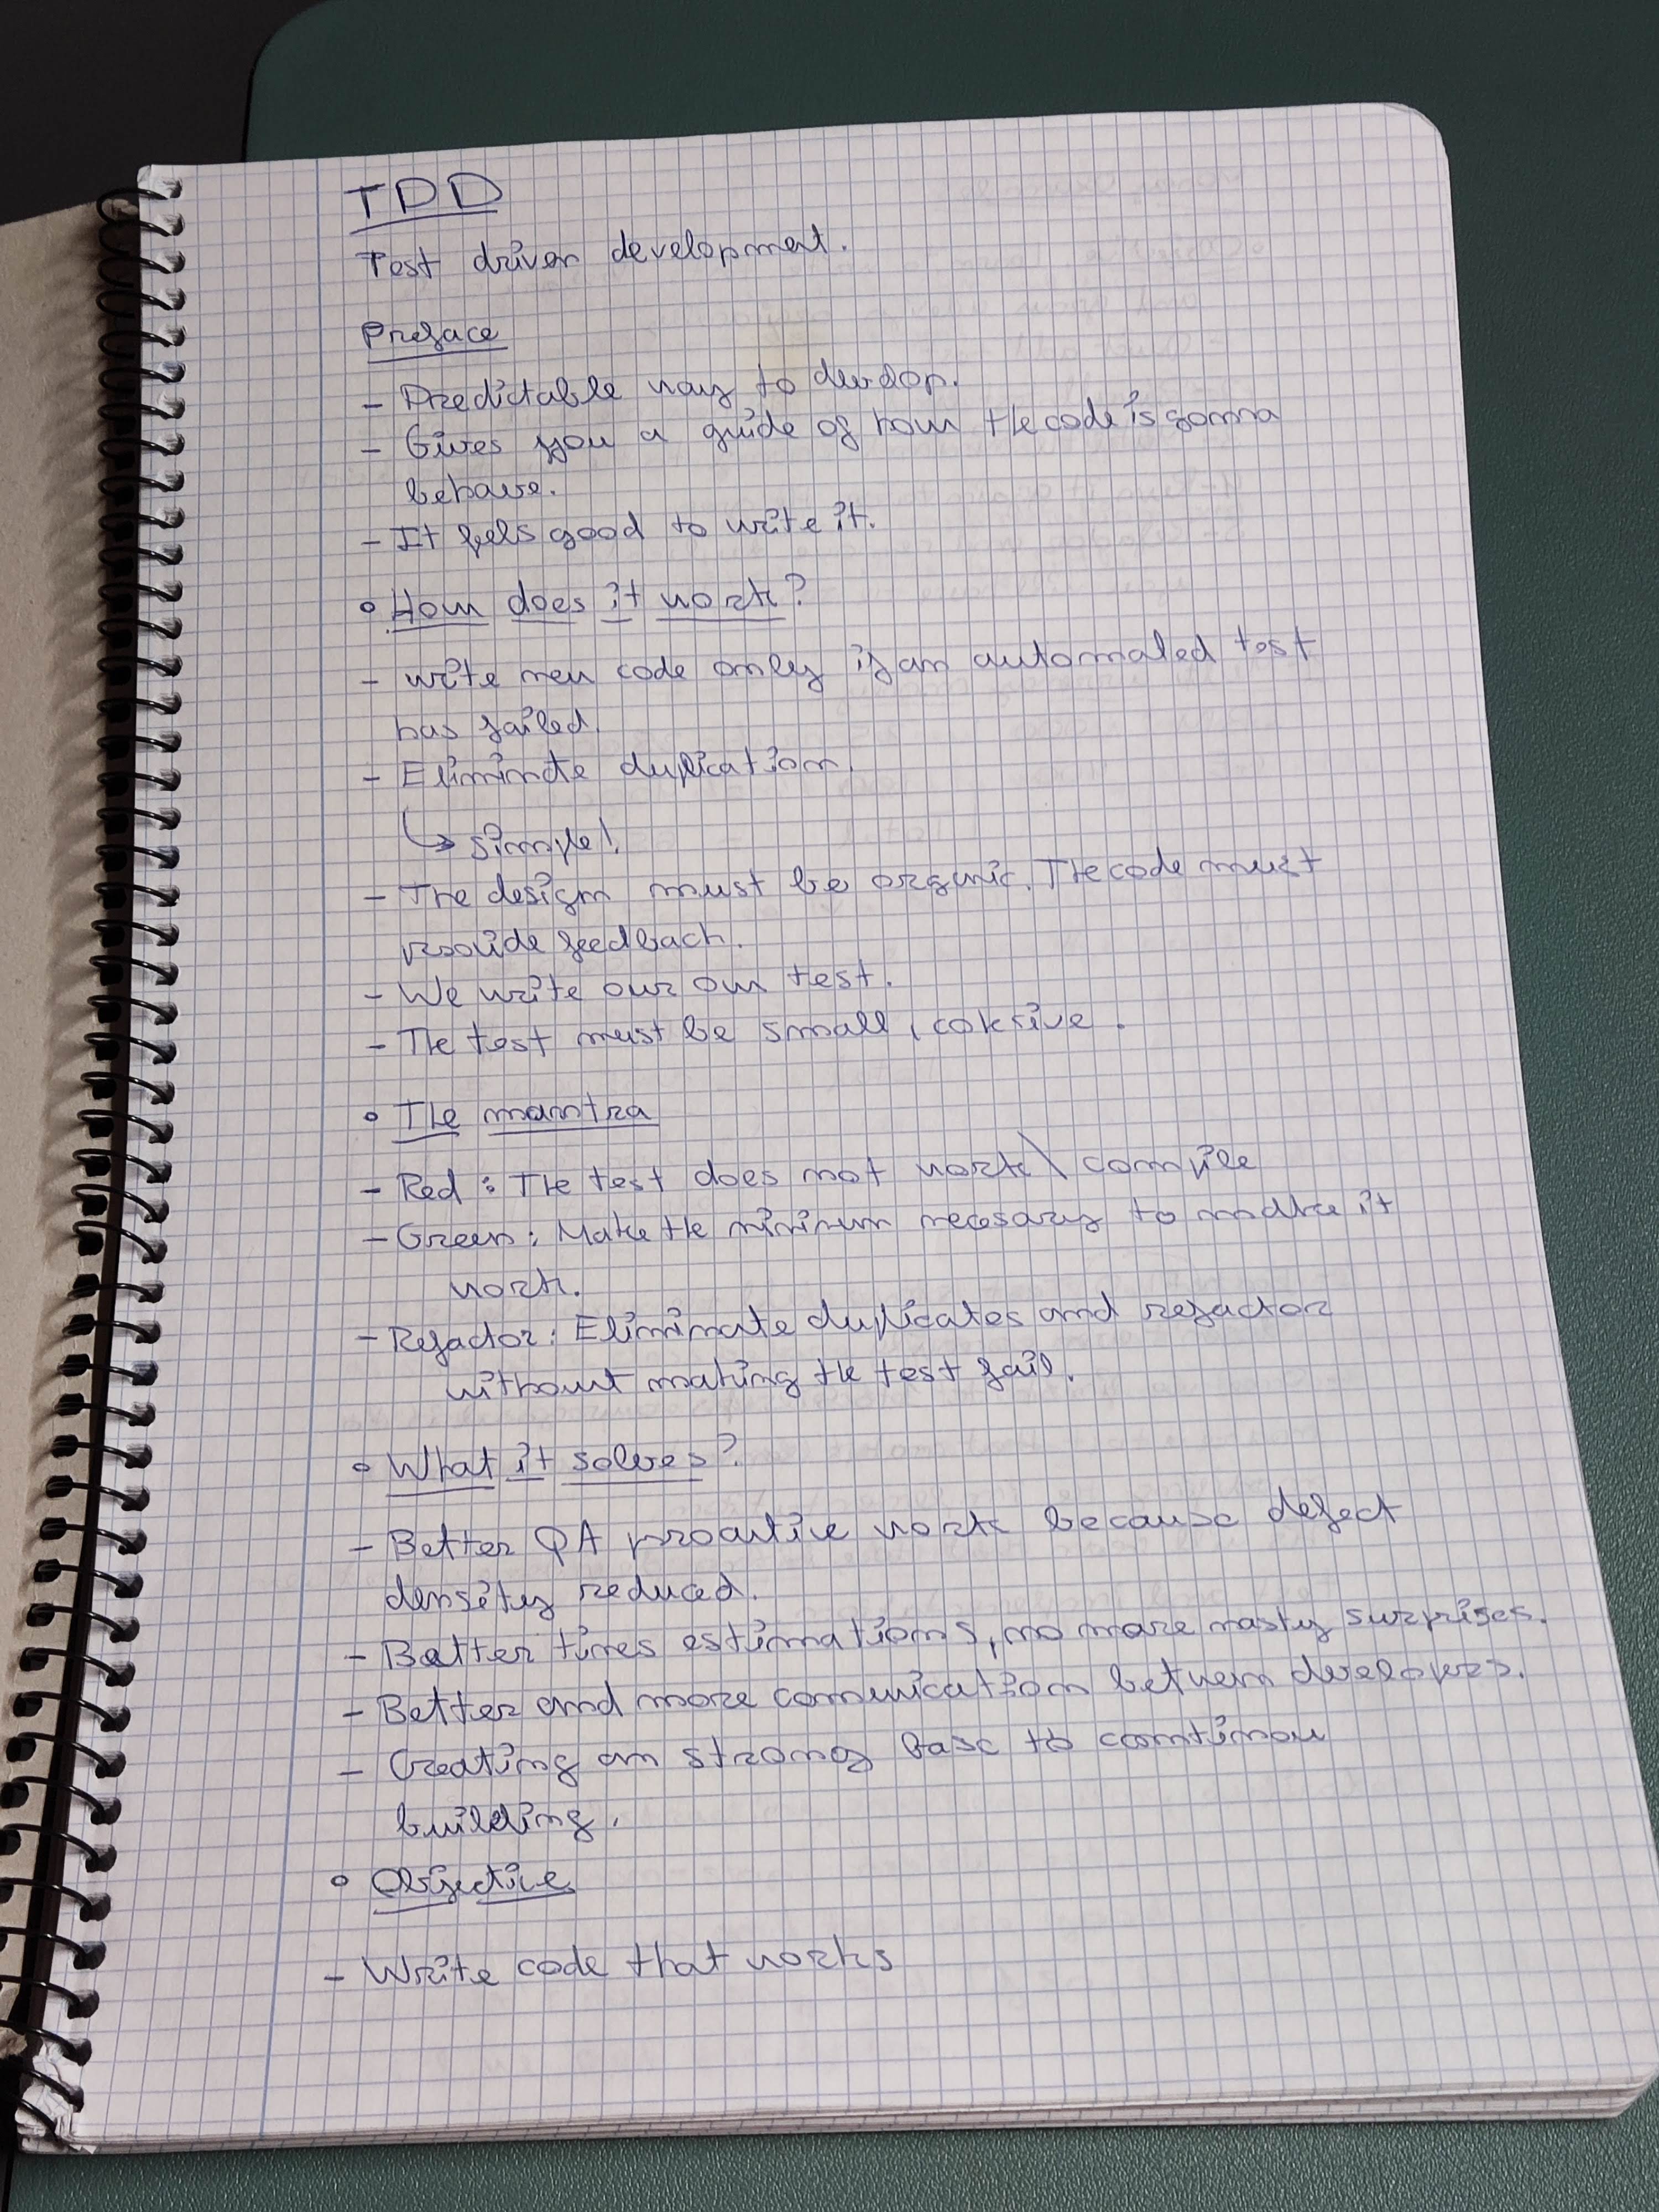 TDD
Test driven development.
Preface
- Predictable way to develop.
- Gives you a guide of how the code is gonna
behave.
- It feels good to write it.
• How does it work?
- write new code only if an automated test
has failed.
- Eliminate duplication.
↳ simple!
- The design must be organic. The code must
provide feedback.
- We write our own test.
- The test must be small, cohesive.
• The mantra
- Red: The test does not work\ compile
- Green: Make the minimum necesary to make it
work.
- Refactor: Eliminate duplicates and refactor
without making the test fail.
• What it solves?
- Better QA proactive work because defect
density reduced.
- Better times estimations, no more nasty surprises.
- Better and more comunication between developers.
- Creating an strong base to continou
building.
• Objective
- Write code that works